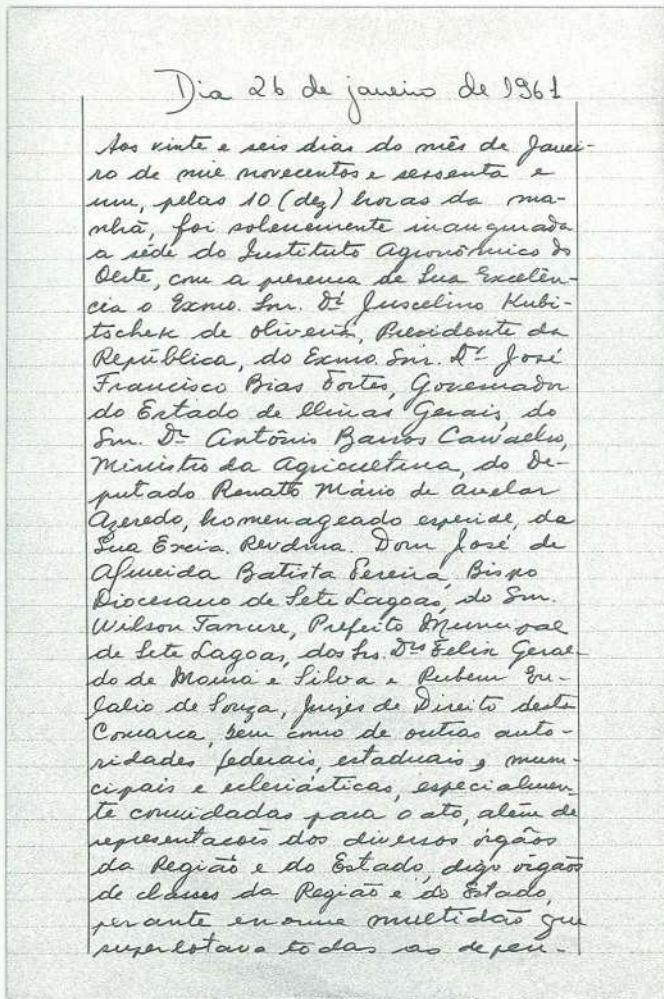 Dia 26 de janeiro de 1961
Aos vinte e seis dias do mês de Janei-
ro de mil novecentos e sessenta e
um, pelas 10 (dez) horas da ma-
nhã, foi solenemente inaugurada
a séde do Instituto Agronômico do
Oeste, com a presença de Sua Excelên-
cia o Exmo. Snr. Dr. Juscelino Kubi-
tschek de Oliveira, Presidente da
República, do Exmo. Snr. Dr. José
Francisco Bias Fortes, Governador
do Estado de Minas Gerais, do
Snr. Dr. Antônio Barros Carvalho,
Ministro da Agricultura, do De-
putado Renato Mário de Avelar
Azeredo, homenageado especial, da
Sua Excia. Revdma. Dom José de
Almeida Batista Pereira, Bispo
Diocesano de Sete Lagoas, do Snr.
Wilson Tanure, Prefeito Municipal
de Sete Lagoas, dos Srs. Drs. Felix Geral-
do de Moura e Silva e Rubem Eu-
lalio de Souza, Juizes de Direito desta
Comarca, bem como de outras auto-
ridades federais, estaduais, muni-
cipais e eclesiásticas, especialmen-
te convidadas para o ato, além de
representacois dos diversos órgãos
da Região e do Estado, digo órgãos
de classes da Região e do Estado,
perante enorme multidão que
superlotava todas as depen-